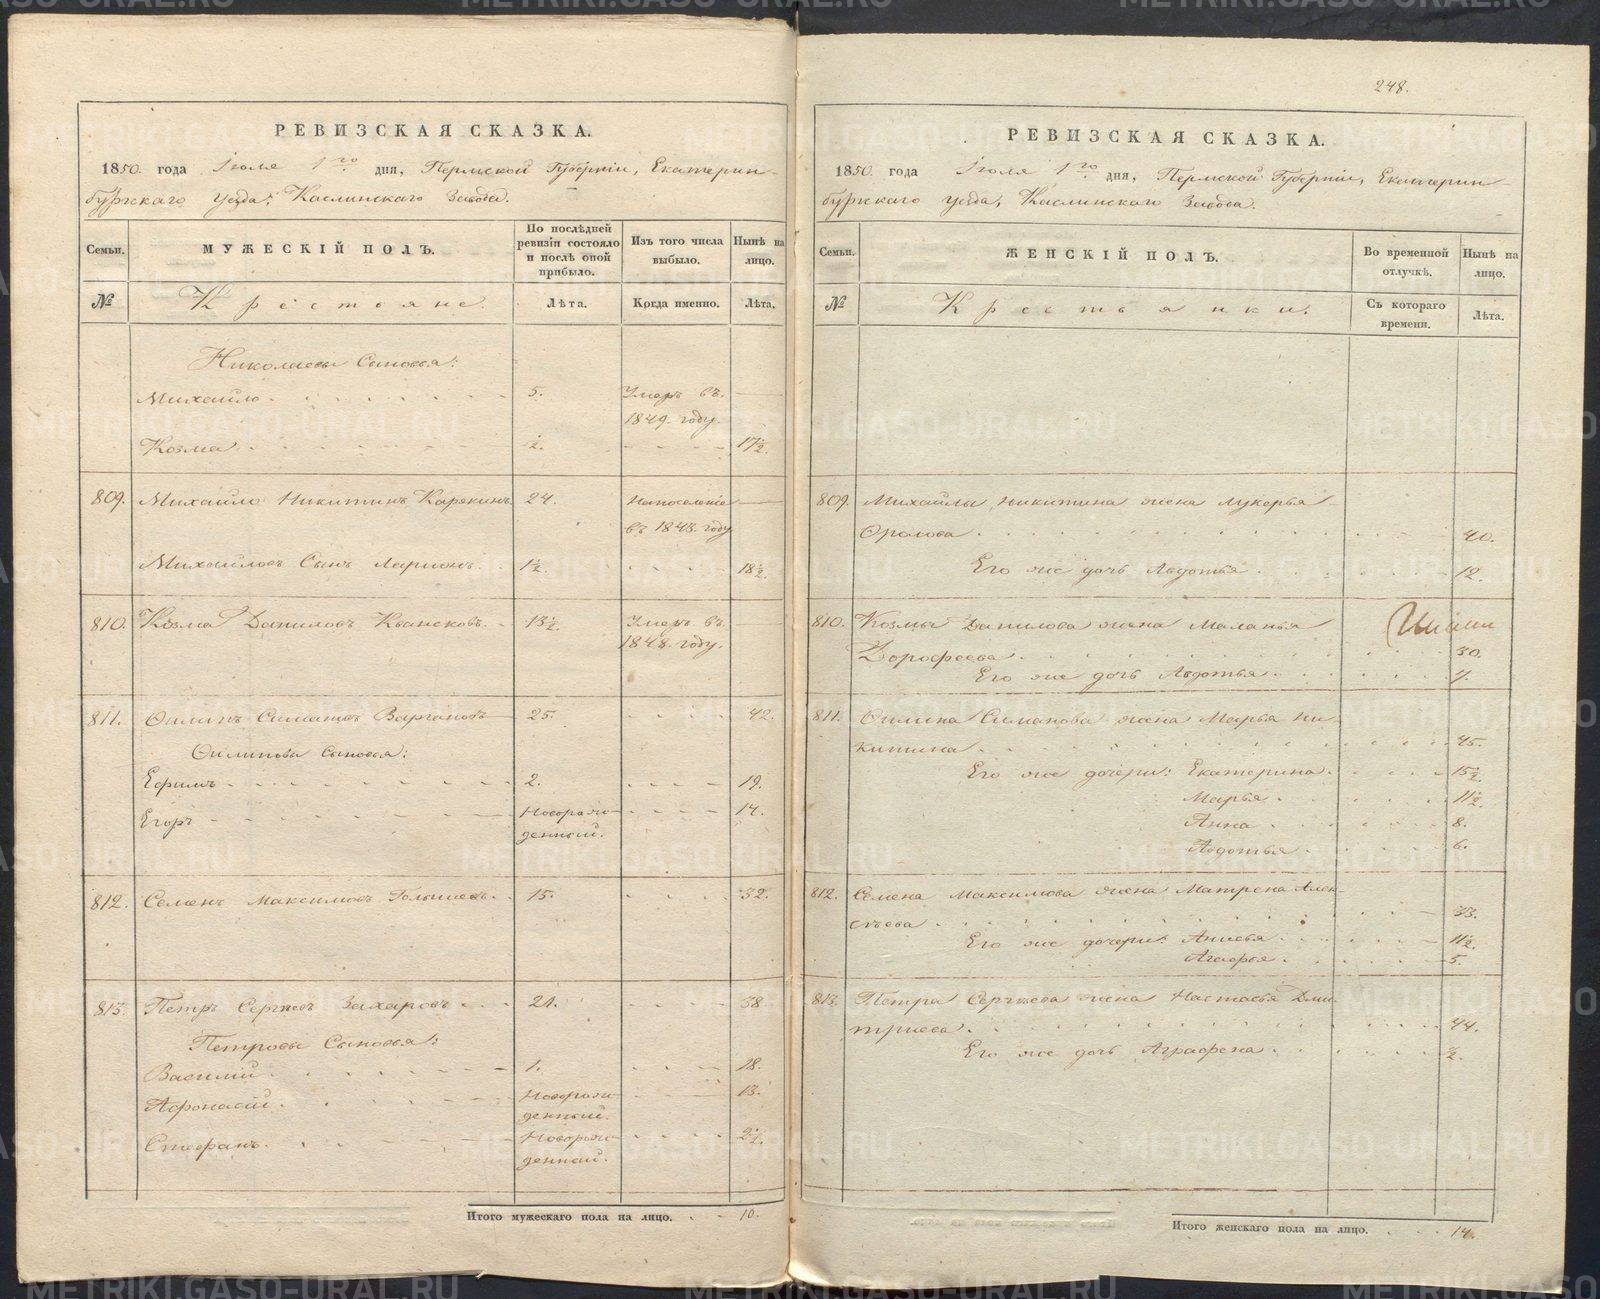 РЕВИЗСКАЯ СКАЗКА.
1850 года Іюля 1го дня, Пермской Губерніи, Екатерин-
бургскаго уезда, Каслинскаго Завода.
Семьи.
МУЖЕСКІЙ ПОЛЪ.
По послѣдней ревизіи состояло и послѣ оной прибыло.
Изъ того числа выбыло.
Нынѣ на лицо.
№
Крестьяне
Лѣта.
Когда именно.
Лѣта.
Николаевы Сыновья:
Михайло 5. Умеръ въ
1849. году.
Козма ½. 17½.
809. Михайло Никитинъ Карякинъ 24. На поселеніе
въ 1843. году
Михайловъ Сынъ Ларионъ 1½. 18½.
810. Козма Даниловъ 13½. Умеръ въ
1848. году.
811. Филипъ Симановъ Варгановъ 25. 42.
Филиповы Сыновья:
Ефимъ 2. 19.
Егоръ Новорож- 14.
денный.
812. Семенъ Максимовъ Голышевъ 15. 32.
813. Петръ Сергѣевъ Захаровъ 21. 38.
Петровы Сыновья:
Василий 1. 18.
Афонасий Новорож- 13.
денный.
Стефанъ Новорож- 2½.
денный.
Итого мужескаго пола на лицо. 10.
248.
РЕВИЗСКАЯ СКАЗКА.
1850 года Іюля 1го дня, Пермской Губерніи, Екатерин-
бургскаго уезда, Каслинскаго Завода.
Семьи.
ЖЕНСКІЙ ПОЛЪ.
Во временной отлучкѣ.
Нынѣ на лицо.
№
Крестьянки.
Съ котораго времени.
Лѣта.
809. Михайлы Никитина жена Лукерья
Фролова 40.
Его же дочь Авдотья 12.
810. Козмы Данилова жена Маланья
Дорофеева 30.
Его же дочь Авдотья
811. Филипа Симанова жена Марья Ни-
китина 45.
Его же дочери: Екатерина 15½.
Марья 11½.
Анна 8.
Авдотья 6.
812. Семена Максимова жена Матрена Алек-
сѣева 33.
Его же дочери: Анисья 11½.
Агафья 5.
813. Петра Сергѣева жена Настасья Дми-
триева 44.
Его же дочь Аграфена
Итого женскаго пола на лицо. 14.
METRIKI.GASO-URAL.RU